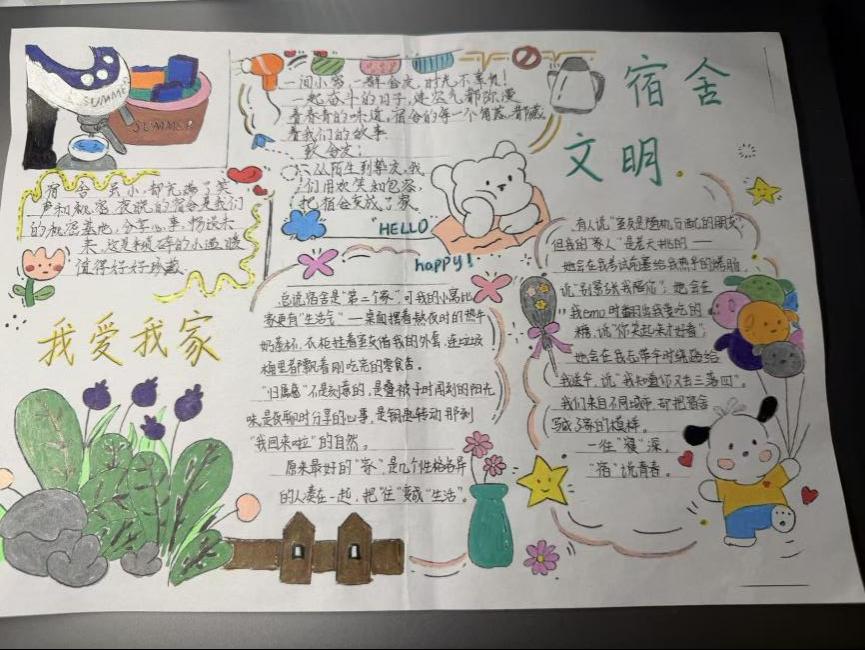 宿舍
文明
SUMMER
SUMMER
一间小窝，一群舍友，时光不辜负！
一起奋斗的日子，连空气都弥漫
着青春的味道，宿舍的每一个角落，都藏
着我们的故事
致舍友：
从陌生到挚友，我
们用欢笑和包容，
把宿舍变成了家
"HELLO"
happy!
宿舍虽小，却充满了笑
声和秘密 夜晚的宿舍是我们
的秘密基地，分享心事，畅谈未
来，这是琐碎的小温暖
值得好好珍藏
我爱我家
总说宿舍是"第二个家"，可我的小窝比
家更有"生活气"——桌面摆着熬夜时的热牛
奶茶杯，衣柜挂着室友借我的外套，连垃圾
桶里都飘着刚吃完的零食香。
"归属感"不是刻意的，是叠被子时闻到的阳光
味，是夜聊时分享的心事，是钥匙转动那刹
"我回来啦"的自然。
原来最好的"家"，是几个性格各异
的人凑在一起，把"住"变成"生活"。
有人说"室友是随机分配的朋友"
但我的"家人"是老天挑的——
她会在我考试前塞给我热乎的
说"别紧张我陪你"；她会在
我emo时翻出我爱吃的
糖，说"你笑起来才好看"；
她会在我忘带伞时绕路给
我送伞，说"我知道你又丢三落四"。
我们来自不同城市，却把宿舍
写成了家的模样。
一往"寝"深，
"宿"说青春。